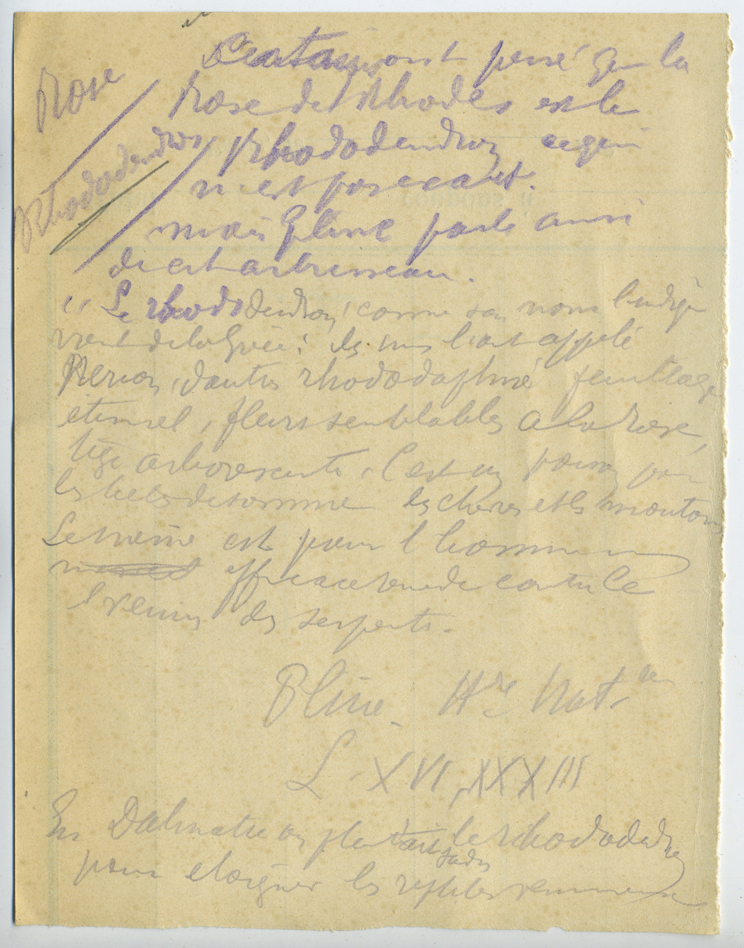 Rose
Rhododendros
Certains ont pensé que la
Rose de Rhodes est le
Rhododendron ce qui
n'est pas exact.
mais Pline parle aussi
de cet arbrisseau.
"Le rhododendron, comme son nom l'indique
vient de la Grèce : les uns l'ont appelé
Nerion, d'autres rhododaphné feuillage
éternel, fleurs semblables a la rose,
tige arborescente. C'est un poison pour
les bêtes de somme les chèvres et les moutons
Le même est pour l'homme un
efficace remède contre le
venin des serpents.
Pline. Hre Natle
L XVI, XXXIII
En Dalmatie on plantait jadis le rhododendron
pour eloigner les reptiles venimeux